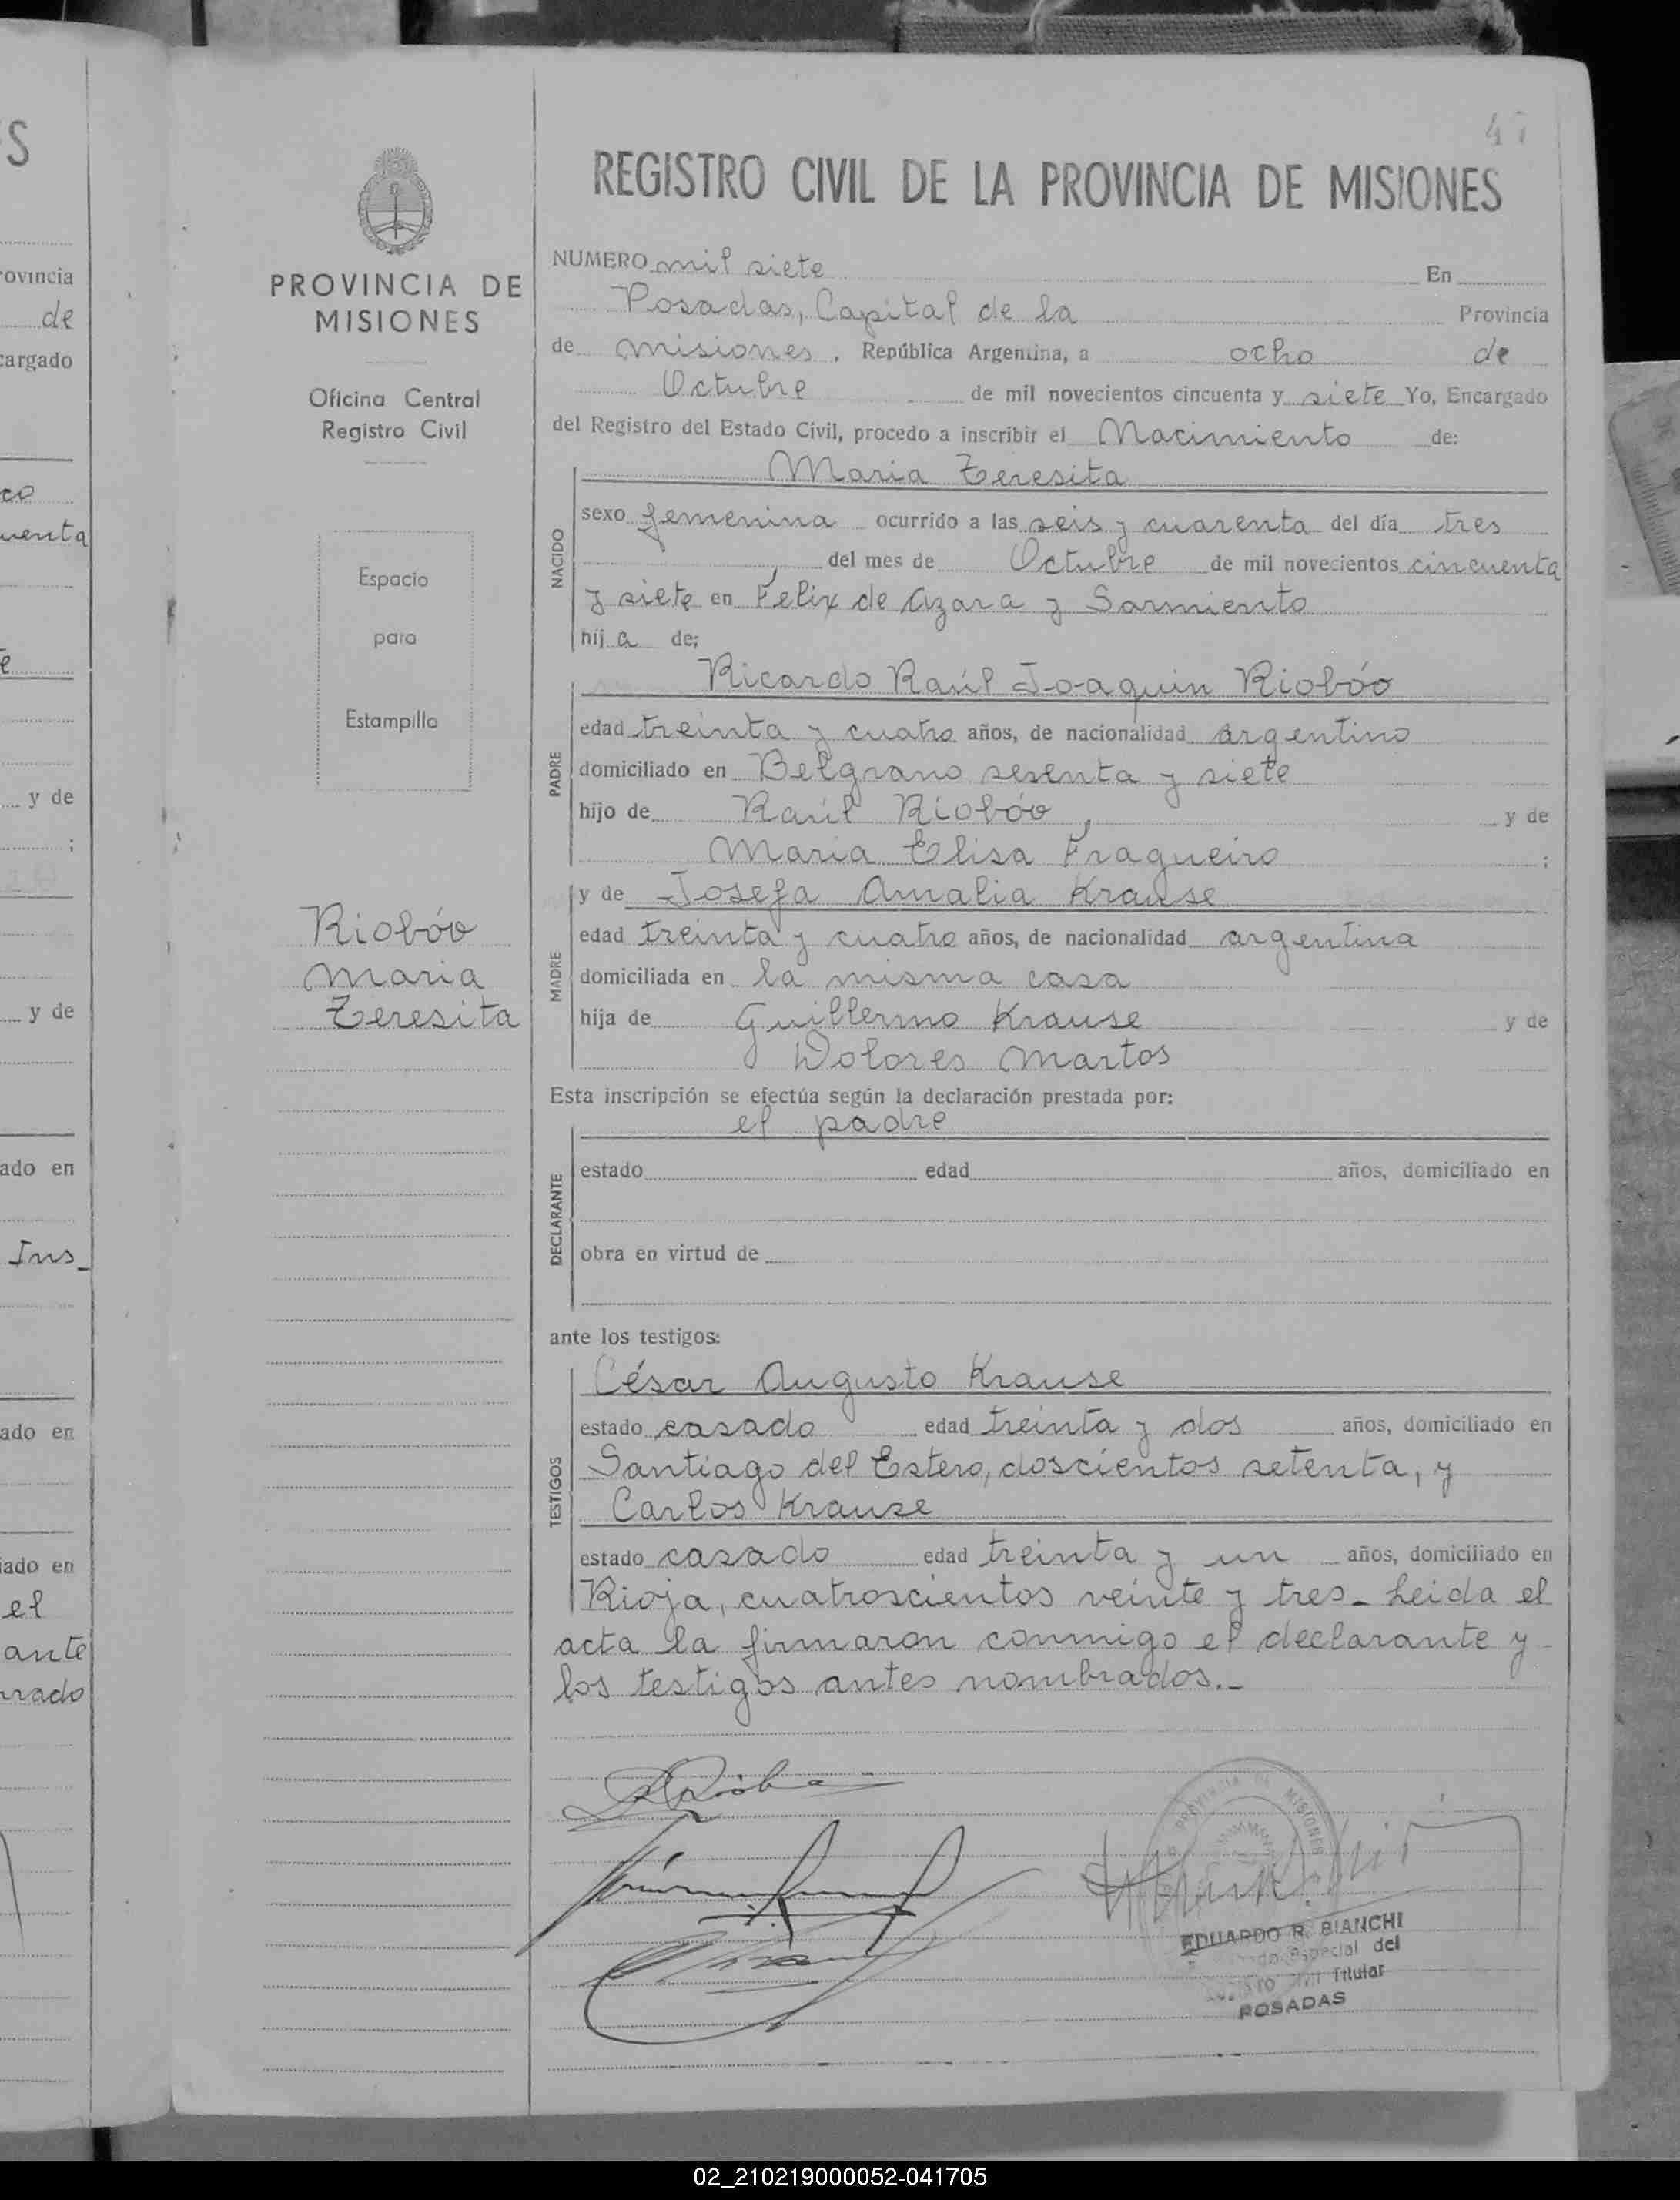 47
REGISTRO CIVIL DE LA PROVINCIA DE MISIONES
PROVINCIA DE
MISIONES
Oficina Central
Registro Civil
Espacio
para
Estampilla
Riobóo
Maria
Teresita
NUMERO mil siete En
Posadas, Capital de la Provincia
de Misiones, República Argentina, a ocho de
Octubre de mil novecientos cincuenta y siete Yo, Encargado
del Registro del Estado Civil, procedo a inscribir el Nacimiento de:
NACIDO
Maria Teresita
sexo femenina ocurrido a las seis y cuarenta del día tres
del mes de Octubre de mil novecientos cincuenta
y siete en Felix de Azara y Sarmiento
hija de;
PADRE
Ricardo Raúl Joaquin Riobóo
edad treinta y cuatro años, de nacionalidad argentino
domiciliado en Belgrano sesenta y siete
hijo de Raúl Riobóo, y de
Maria Elisa Fragueiro :
MADRE
y de Josefa Amalia Krause
edad treinta y cuatro años, de nacionalidad argentina
domiciliada en la misma casa
hija de Guillermo Krause y de
Dolores Martos
Esta inscripción se efectúa según la declaración prestada por:
el padre
DECLARANTE
estado edad años, domiciliado en
obra en virtud de
ante los testigos:
TESTIGOS
César Augusto Krause
estado casado edad treinta y dos años, domiciliado en
Santiago del Estero, doscientos setenta, y
Carlos Krause
estado casado edad treinta y un años, domiciliado en
Rioja, cuatroscientos veinte y tres_ Leida el
acta la firmaron conmigo el declarante y
los testigos antes nombrados._
PROVINCIA DE MISIONES
EDUARDO R. BIANCHI
Especial del
Titular
POSADAS
S
rovincia
de
cargado
co
uenta
e
y de
;
y de
ado en
Ins_
ado en
iado en
el
ante
rado
02_210219000052-041705